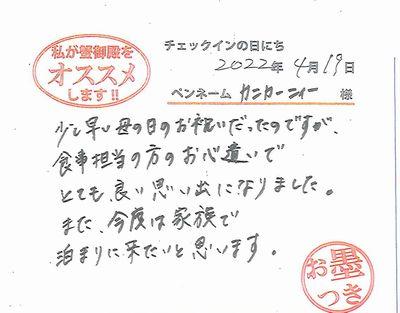 私が蟹御殿を
オススメ
します!!
チェックインの日にち
2022年4月19日
ペンネーム カンカーニィー 様
少し早い母の日のお祝いだったのですが、
食事担当の方のお心遣いで
とても良い思い出になりました。
また、今度は家族で
泊まりに来たいと思います。
お墨
つき